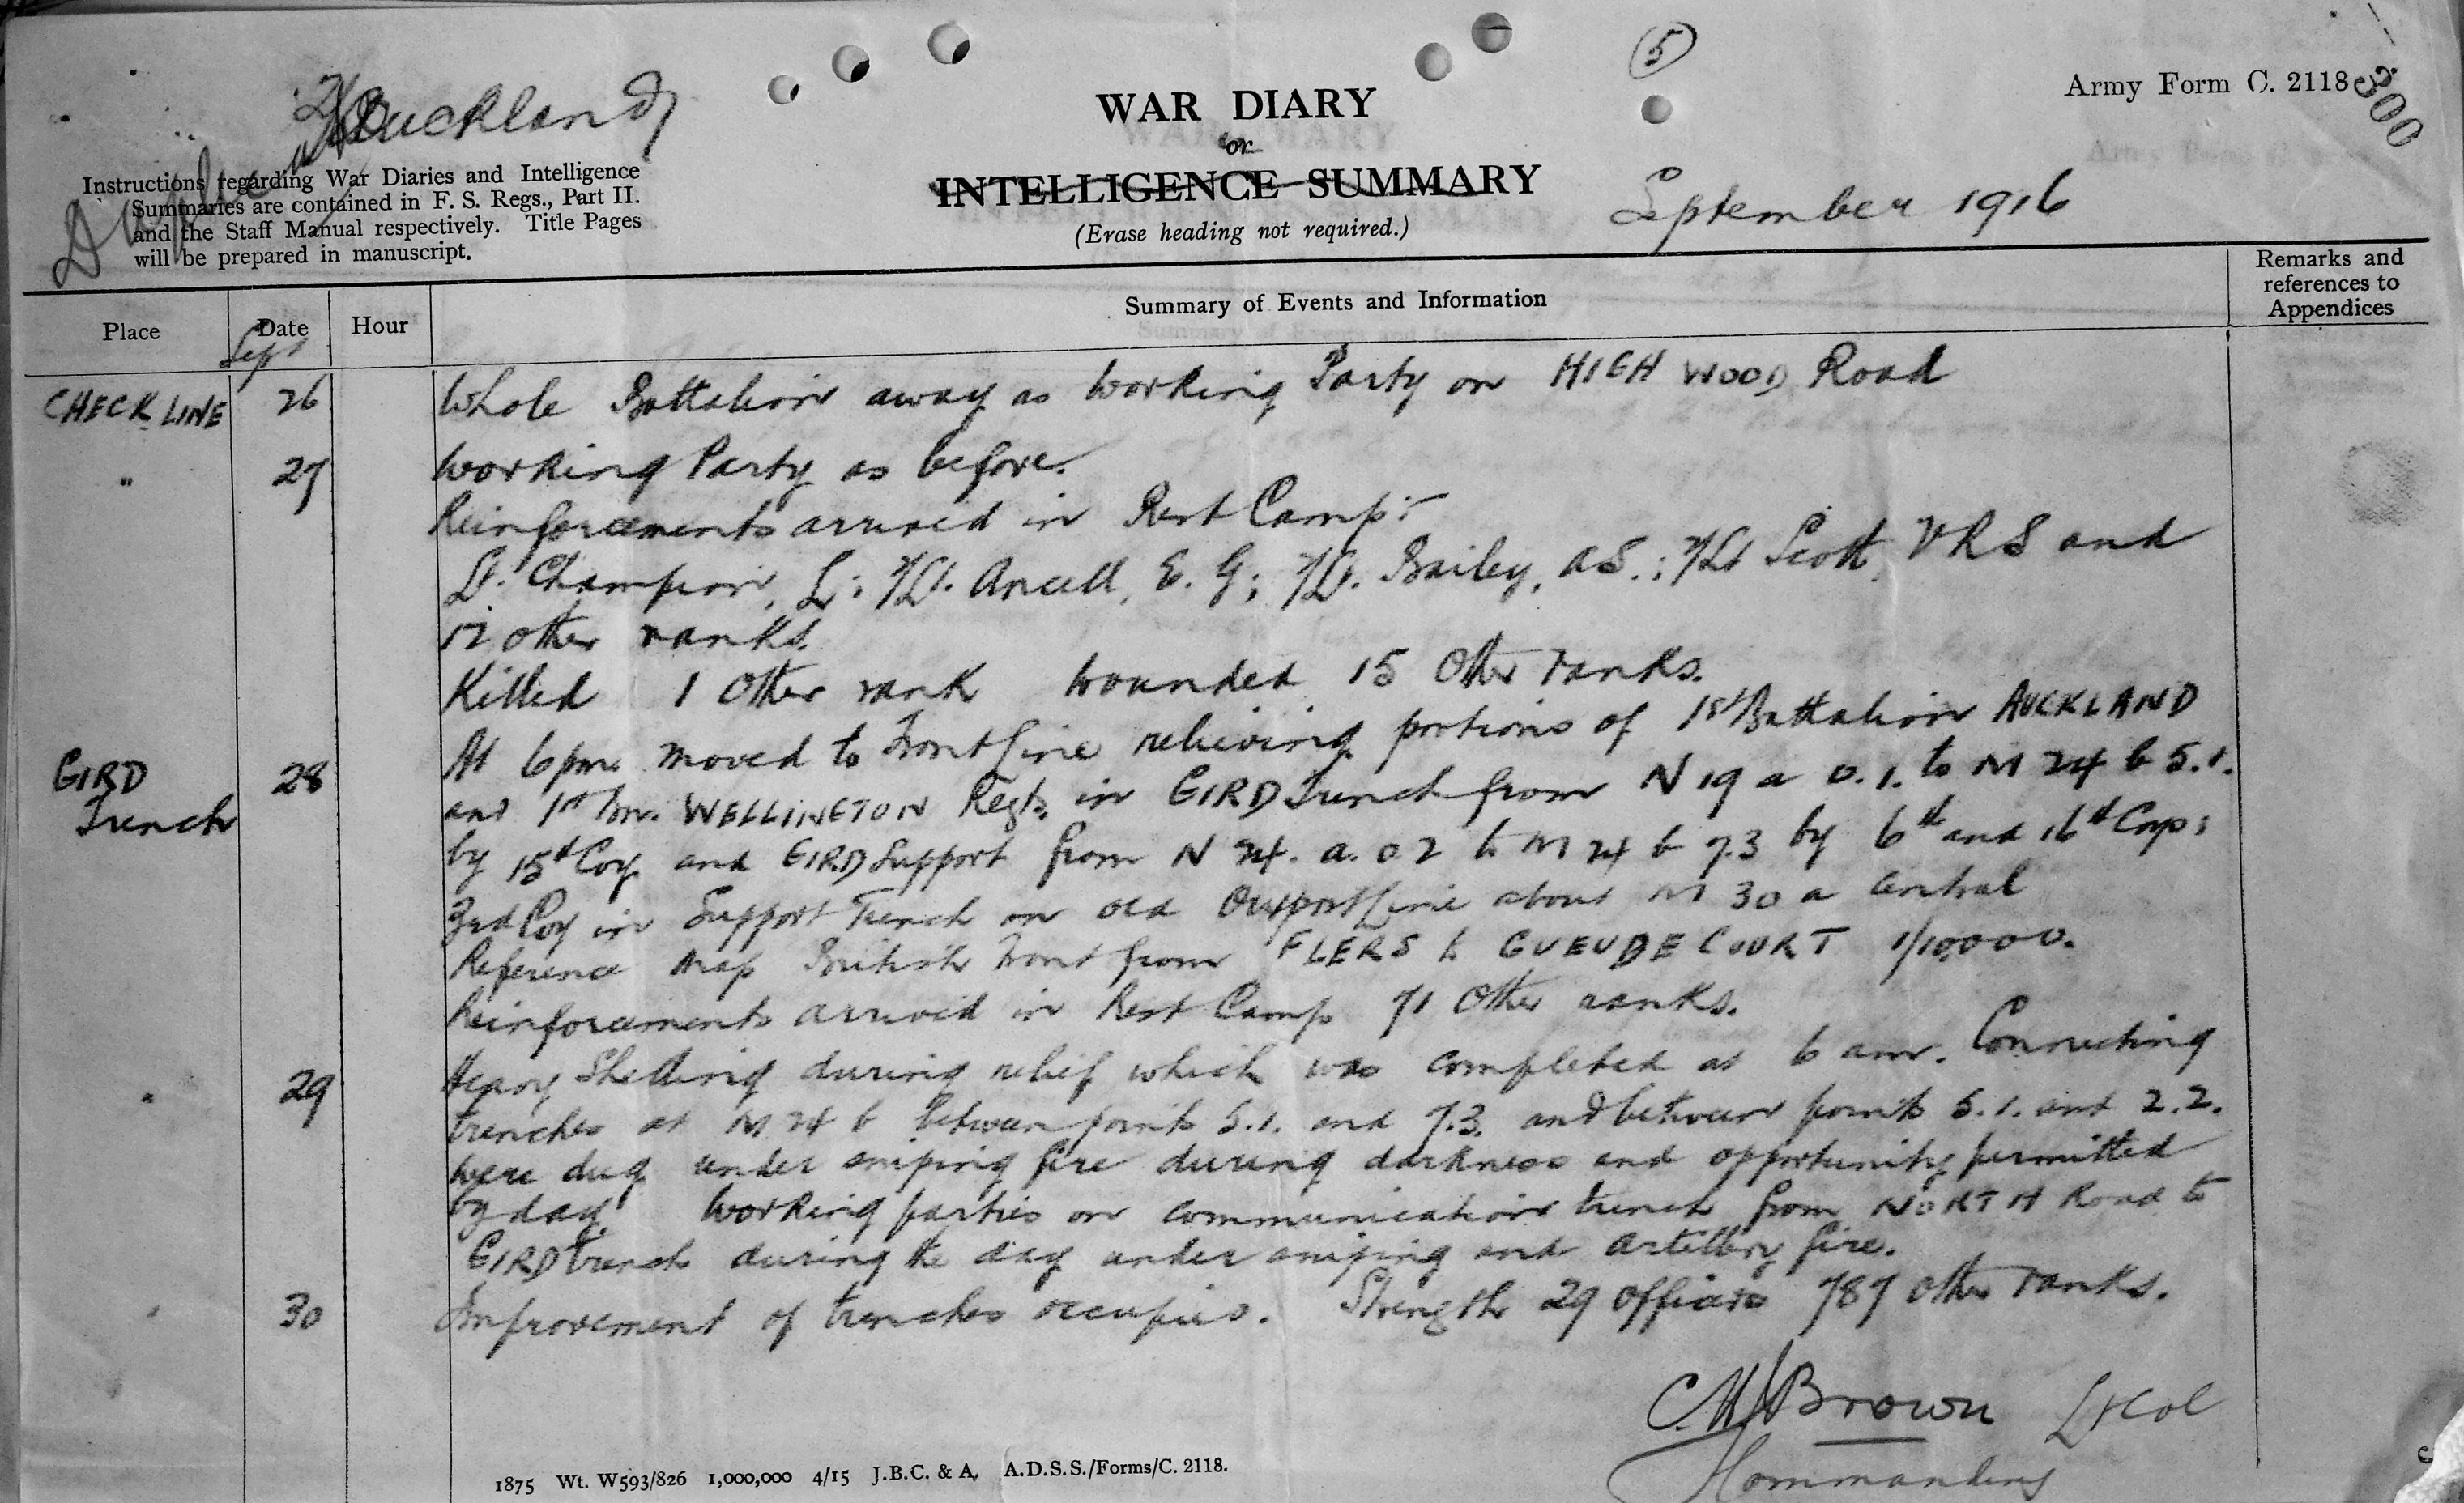 5
Army Form C. 2118
300
2/Auckland
Duplicate
WAR DIARY
or
INTELLIGENCE SUMMARY
(Erase heading not required.)
September 1916
Instructions regarding War Diaries and Intelligence
Summaries are contained in F. S. Regs., Part II.
and the Staff Manual respectively. Title Pages
will be prepared in manuscript.
Place Date Hour Summary of Events and Information Remarks and references to Appendices
Sept
CHECK LINE 26 Whole Battalion away as Working Party on HIGH WOOD Road
" 27 Working Party as before.
Reinforcements arrived in Rest Camp:-
Lt. Champion, L; 2/Lt. Ancell, E. G; 2/Lt. Bailey, A S.; 2/Lt Scott, V R S and
12 other ranks.
Killed 1 Other rank wounded 15 Other ranks.
GIRD Trench 28 At 6 pm. moved to Front Line relieving portions of 1st Battalion AUCKLAND
and 1st Bn. WELLINGTON Regts. in GIRD Trench from N 19 a 0.1. to M 24 b 5.1.
by 15th Coy and GIRD Support from N 24. a. 0 2 to M 24 b 7.3 by 6th and 16th Coys;
3rd Coy in Support Trench on old Outpost Line about M 30 a Central
Reference Map British Front from FLERS to GUEUDECOURT 1/10,000.
Reinforcements arrived in Rest Camp 71 Other ranks.
" 29 Heavy Shelling during relief which was completed at 6 am. Connecting
trenches at M 24 b between points 5.1. and 7.3. and between points 5.1. and 2.2.
were dug under sniping fire during darkness and opportunity permitted
by day. Working parties on communication trench from NORTH Road to
GIRD trench during the day under sniping and artillery fire.
" 30 Improvement of trenches occupied. Strength 29 Officers 787 other ranks.
C.H.J Brown Lt Col
Commanding
1875 Wt. W593/826 1,000,000 4/15 J.B.C. & A. A.D.S.S./Forms/C. 2118.